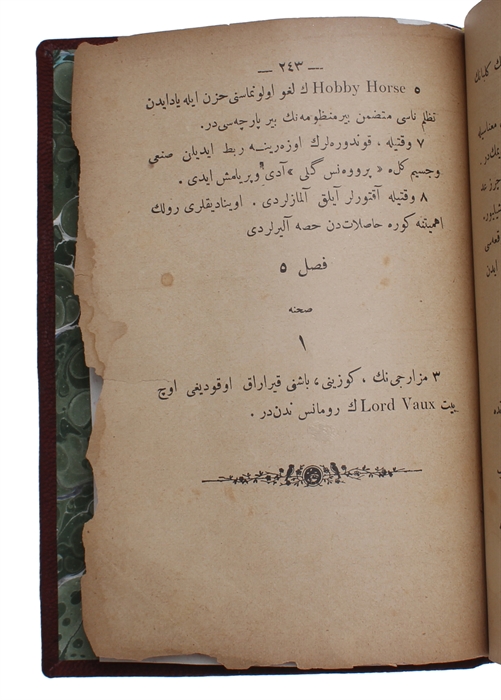 — ٢٤٣ —
٥ Hobby Horse ك لغو اولونماسنی حزن ایله یادایدن
تظلم ناسی متضمن بیرمنظومه‌نك بیر پارچه‌سی‌در.
٧ وقتیله ، قوندوره‌لرك اوزه‌رینه ربط ایدیلن صنعی
وجسیم كله « پرووه‌نس گلی » آدی ویریلمش ایدی .
٨ وقتیله آقتورلر آیلق آلمازلردی . اوینادیقلری رولك
اهمیتنه كوره حاصلات‌دن حصه آلیرلردی
فصل ٥
صحنه
١
٣ مزارجی‌نك ، كوزینی ، باشنی قیراراق اوقودیغی اوچ
بیت Lord Vaux ك رومانس ندن‌در .